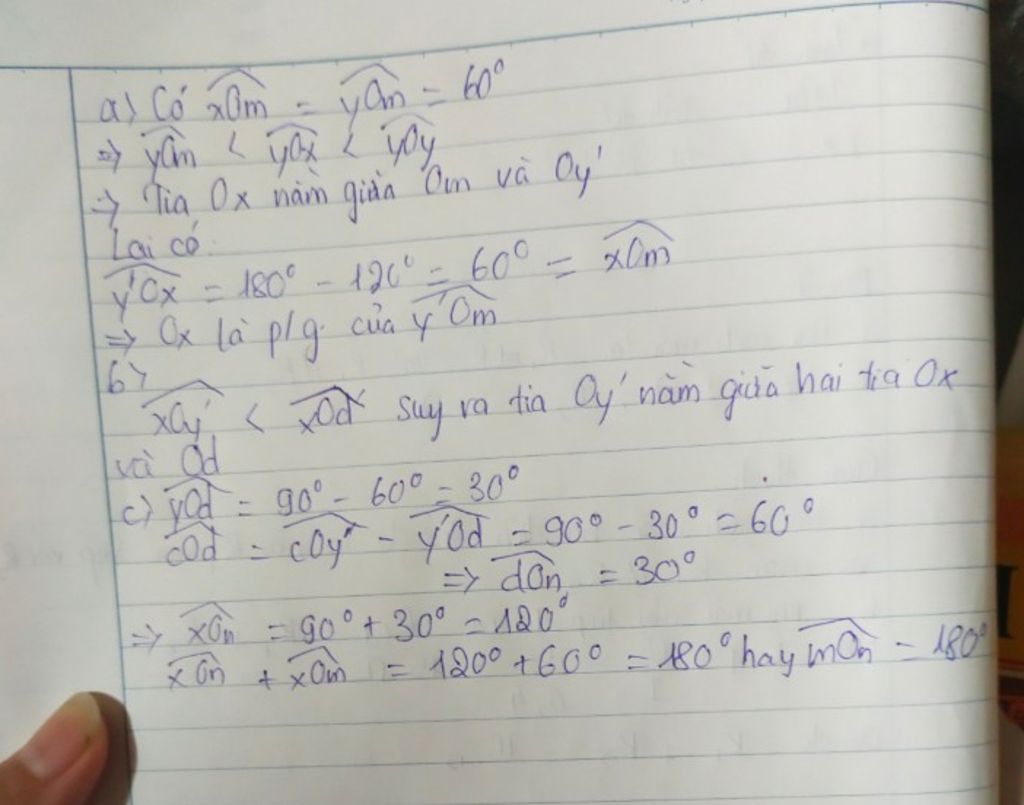 a) Có xOm = yOm = 60°
=> yOm < yOx < yOy
=> Tia Ox nằm giữa Om và Oy'
Lại có:
y'Ox = 180° - 120° = 60° = xOm
=> Ox là p/g. của y'Om
b)
xOy' < xOd suy ra tia Oy' nằm giữa hai tia Ox
và Od
c) yOd = 90° - 60° = 30°
cOd = cOy' - y'Od = 90° - 30° = 60°
=> dOn = 30°
=> xOn = 90° + 30° = 120°
xOn + xOm = 120° + 60° = 180° hay mOn = 180°